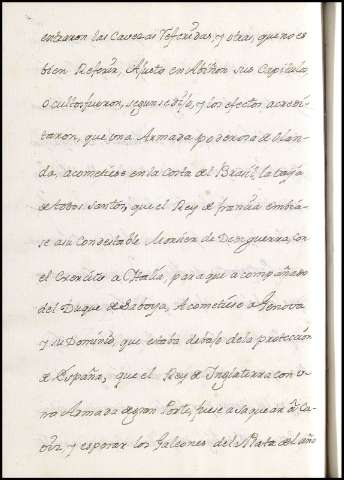 entraron las Cavezas Referidas, y otras, que no es
bien Referir, Ajusto en Abiñon sus Capitulos
ocultos fueron, segun se dijo, y los efectos acredi-
taron, que una Armada poderosa de Olan-
da, acometiese en la Costa del Brasil, la baya
de todos Santos, que el Rey de francia embia-
se a su Condestable Mosiur de Desguerra, con
el Exercito a Ytalia, para que acompañado
del Duque de Saboya, Acometiese a Jenova
y su Dominio, que estaba devajo de la proteccion
de España, que el Rey de Inglaterra con u-
na Armada de gran Porte, fuese a saquear a Ca-
diz, y esperar los Galeones de la Plata del año